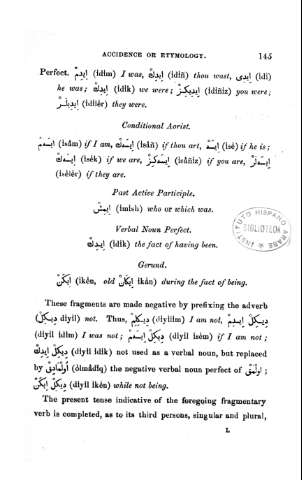 ACCIDENCE OR ETYMOLOGY. 145
Perfect. ايدم (idim) I was, ايدك (idiñ) thou wast, ايدى (idi)
he was; ايدك (idik) we were; ايديكز (idiñiz) you were;
ايديلر (idiler) they were.
Conditional Aorist.
ايسم (isâm) if I am, ايسك (isâñ) if thou art, ايسه (isé) if he is;
ايسك (isék) if we are, ايسكز (isâñiz) if you are, ايسەلر
(isélér) if they are.
Past Active Participle.
ايمش (imish) who or which was.
Verbal Noun Perfect.
ايدك (idik) the fact of having been.
Gerund.
ايكن (ikén, old ايكان ikân) during the fact of being.
These fragments are made negative by prefixing the adverb
(ديكل diyil) not. Thus, ديكلم (diyilim) I am not, ديكل ايدم
(diyil idim) I was not; ديكل ايسم (diyil isém) if I am not;
ديكل ايدك (diyil idik) not used as a verbal noun, but replaced
by اولمادق (ólmâdiq) the negative verbal noun perfect of اولمق;
ديكل ايكن (diyil ikén) while not being.
The present tense indicative of the foregoing fragmentary
verb is completed, as to its third persons, singular and plural,
L
INSTITUTO HISPANO ARABE
BIBLIOTECA